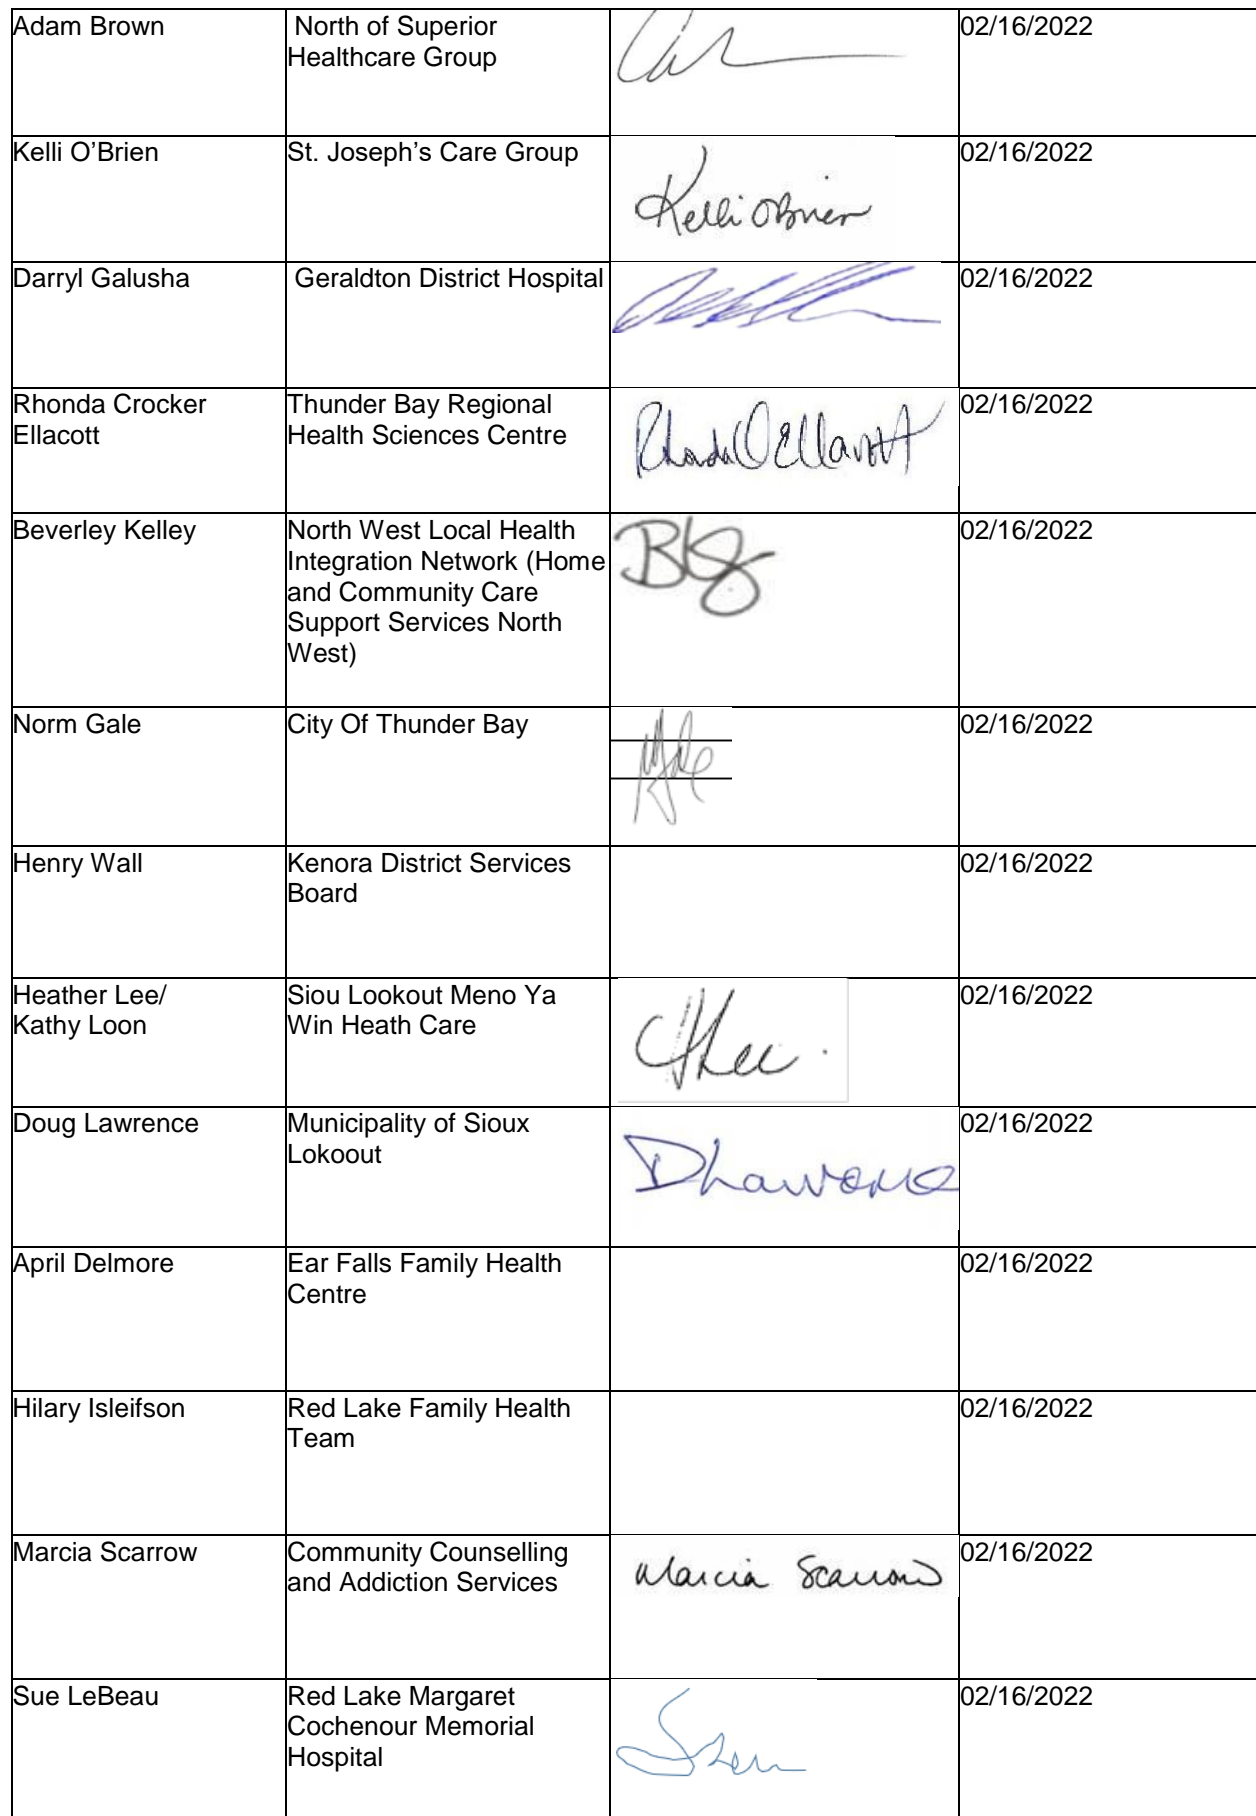 Adam Brown
North of Superior
Healthcare Group
02/16/2022
Kelli O’Brien
St. Joseph’s Care Group
Kelli OBrien
02/16/2022
Darryl Galusha
Geraldton District Hospital
02/16/2022
Rhonda Crocker
Ellacott
Thunder Bay Regional
Health Sciences Centre
02/16/2022
Beverley Kelley
North West Local Health
Integration Network (Home
and Community Care
Support Services North
West)
02/16/2022
Norm Gale
City Of Thunder Bay
02/16/2022
Henry Wall
Kenora District Services
Board
02/16/2022
Heather Lee/
Kathy Loon
Siou Lookout Meno Ya
Win Heath Care
02/16/2022
Doug Lawrence
Municipality of Sioux
Lokoout
02/16/2022
April Delmore
Ear Falls Family Health
Centre
02/16/2022
Hilary Isleifson
Red Lake Family Health
Team
02/16/2022
Marcia Scarrow
Community Counselling
and Addiction Services
Marcia Scarrow
02/16/2022
Sue LeBeau
Red Lake Margaret
Cochenour Memorial
Hospital
02/16/2022